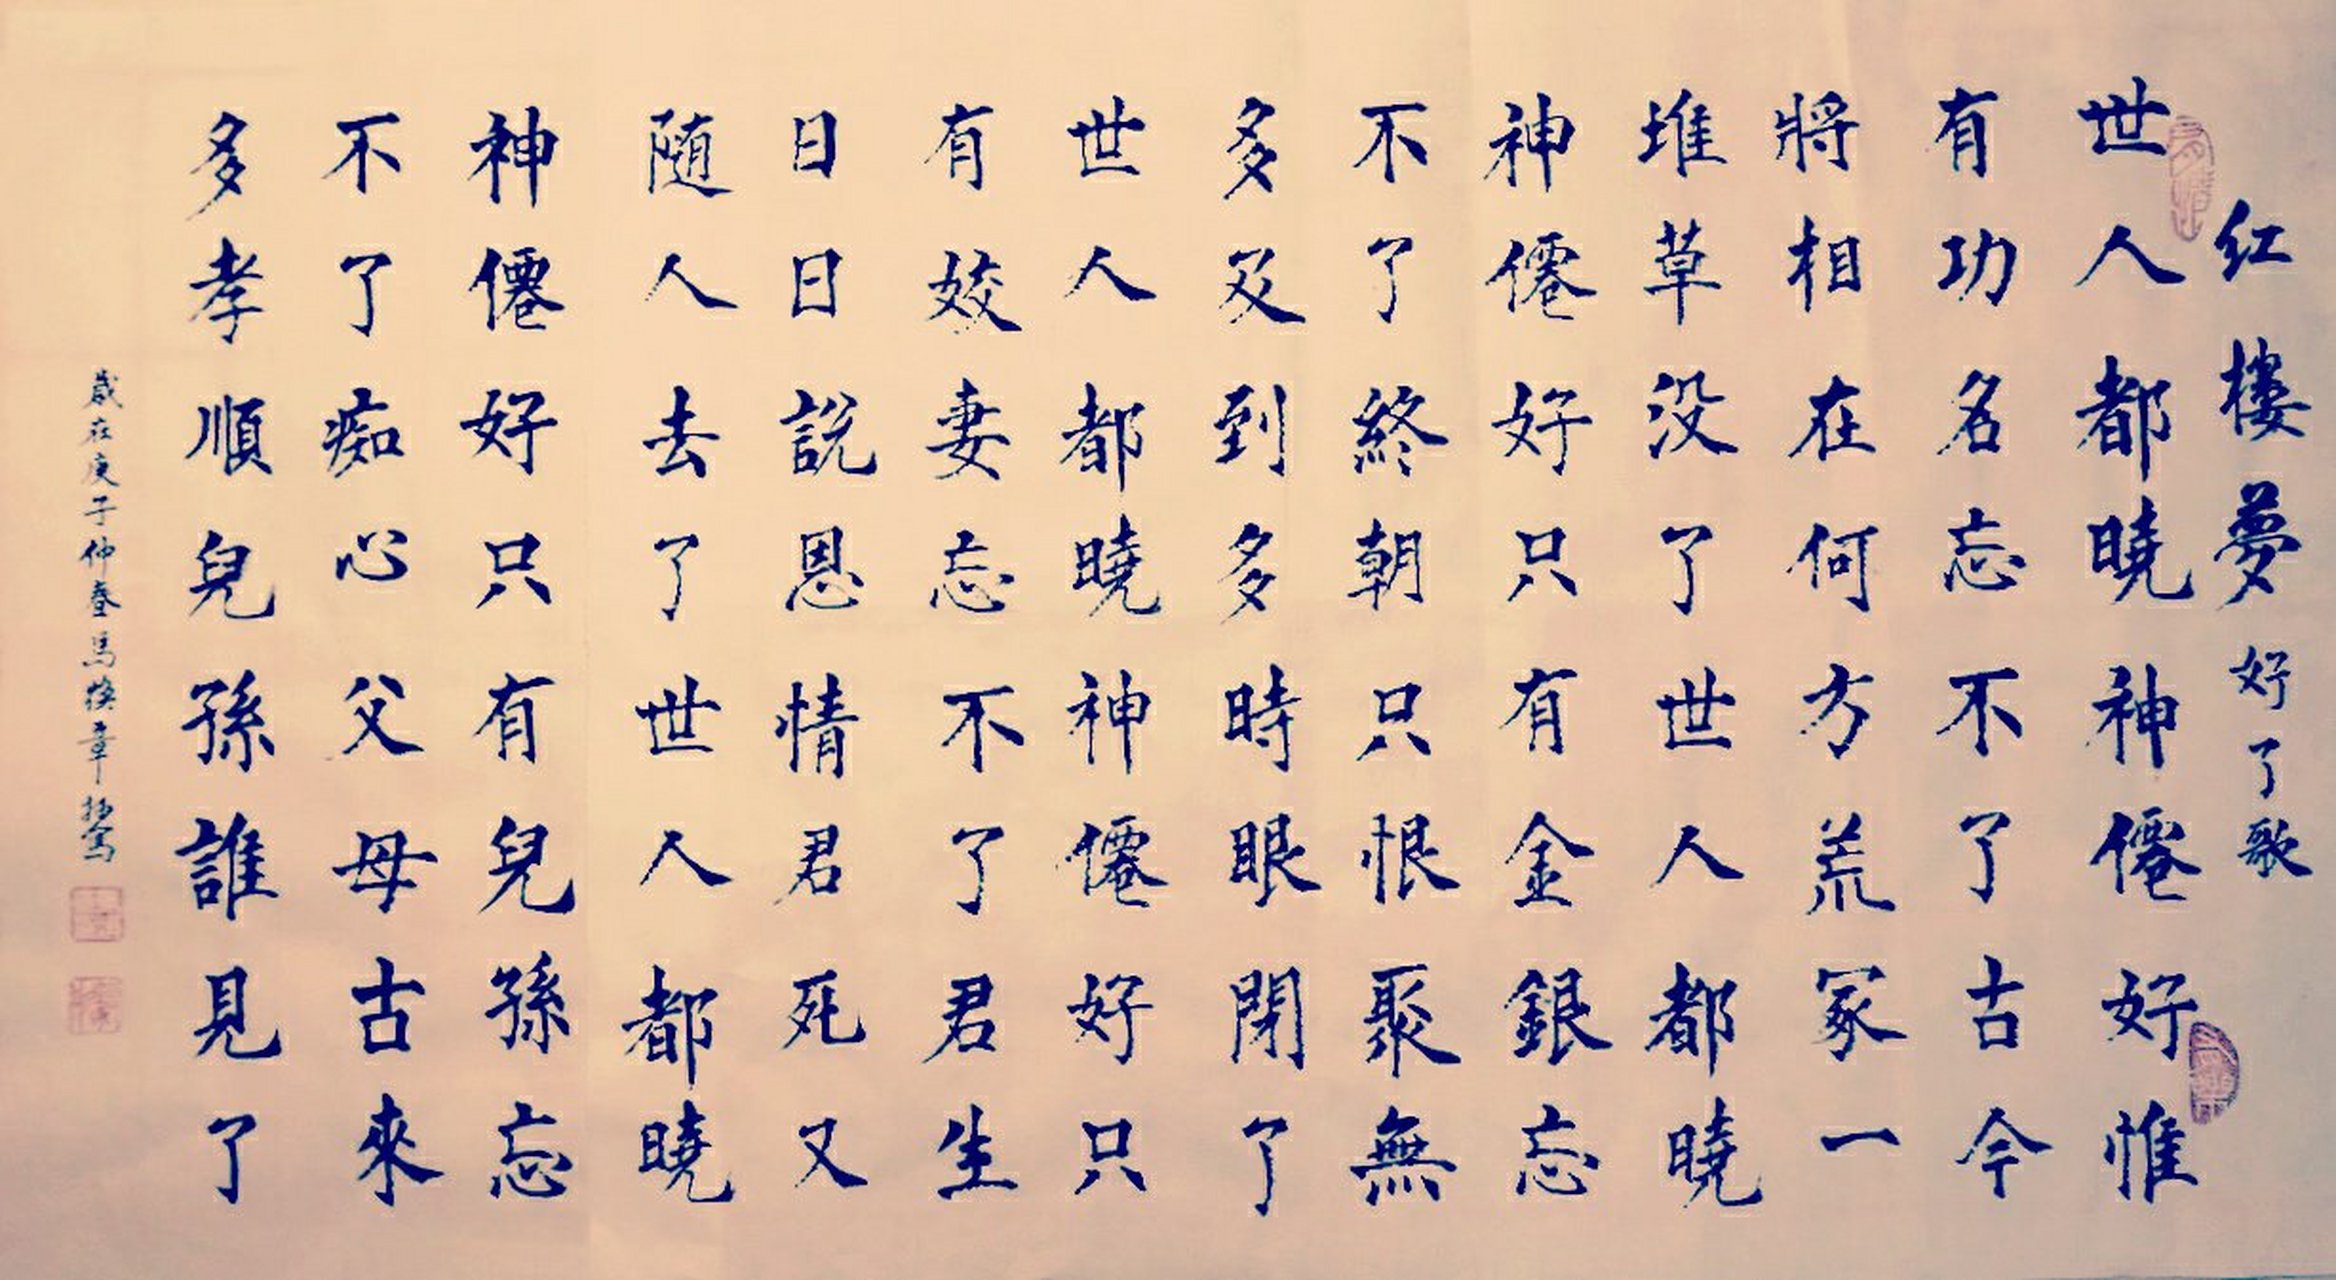 红樓夢好了歌
世人都曉神僊好惟
有功名忘不了古今
將相在何方荒冢一
堆草没了世人都曉
神僊好只有金銀忘
不了終朝只恨聚無
多及到多時眼閉了
世人都曉神僊好只
有姣妻忘不了君生
日日説恩情君死又
随人去了世人都曉
神僊好只有兒孫忘
不了痴心父母古來
多孝順兒孫誰見了
歲在庚子仲春馬焕章